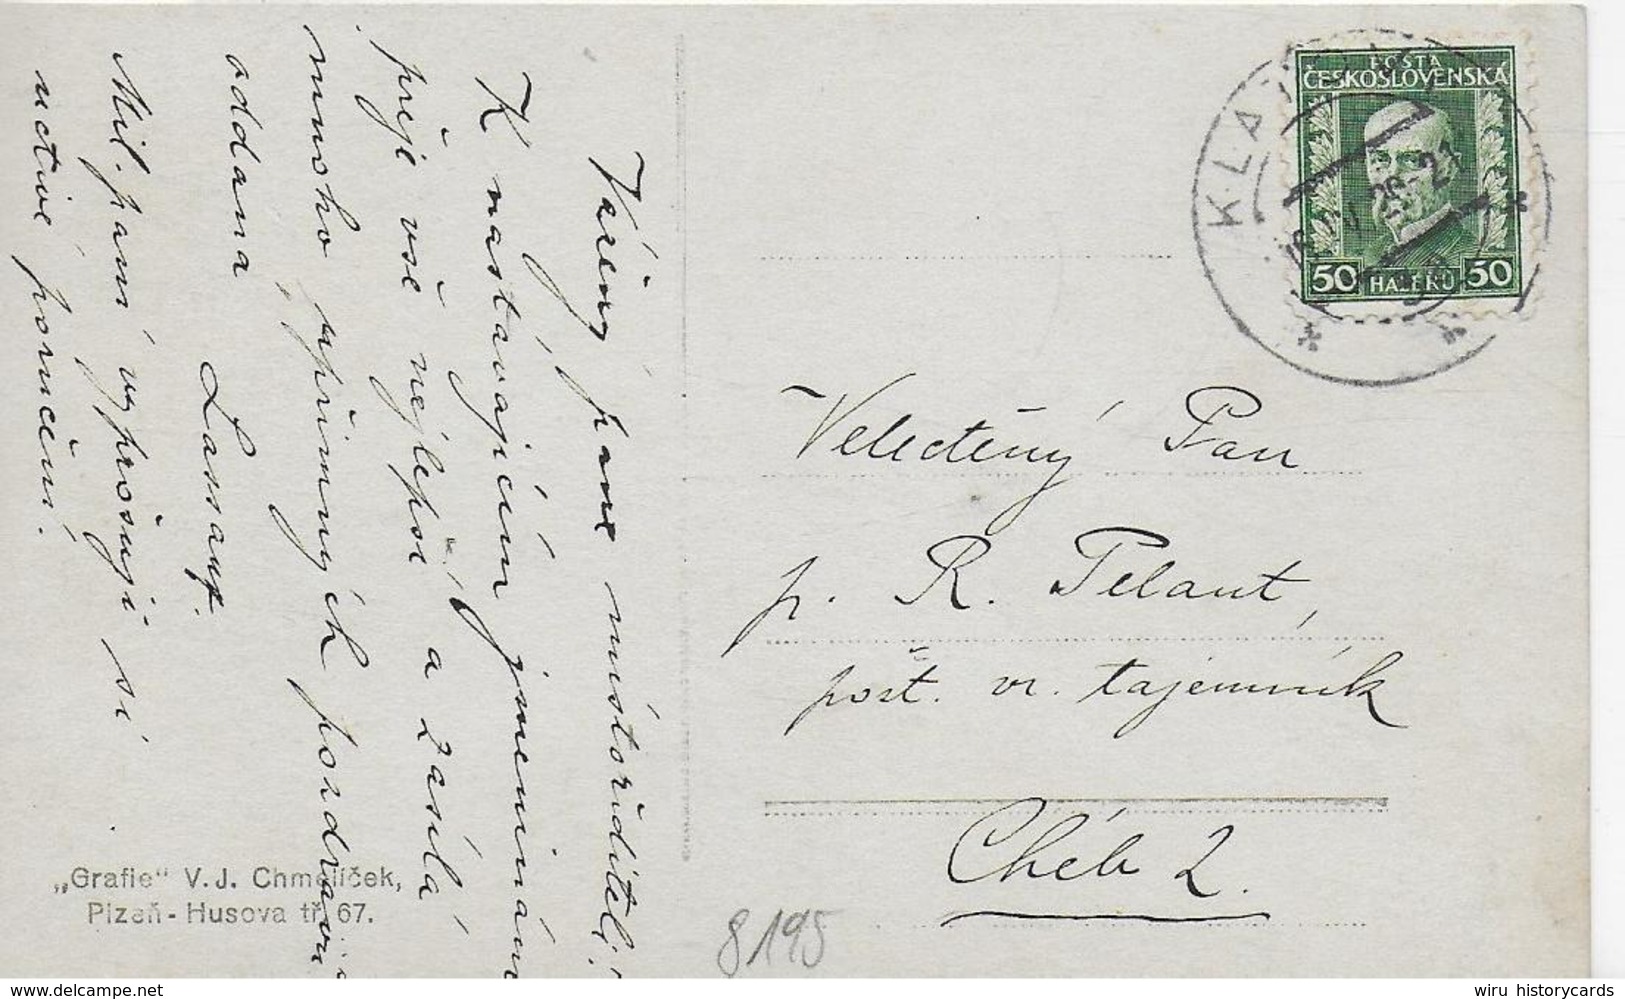 Vážený pane místořediteli!
K nastávajícím jmeninám
přeje vše nejlepší a zasílá
mnoho upřímných pozdravů
oddaná
Mil. paní vyprošuji si
uctivé poručení.
„Grafie" V. J. Chmelíček,
Plzeň - Husova tř. 67.
POŠTA
ČESKOSLOVENSKÁ
50 HALÉŘŮ 50
KLATOVY
Velectěný Pan
p. R. Pelant,
pošt. vr. tajemník
Chéb 2.
8195
www.delcampe.net
wiru historycards